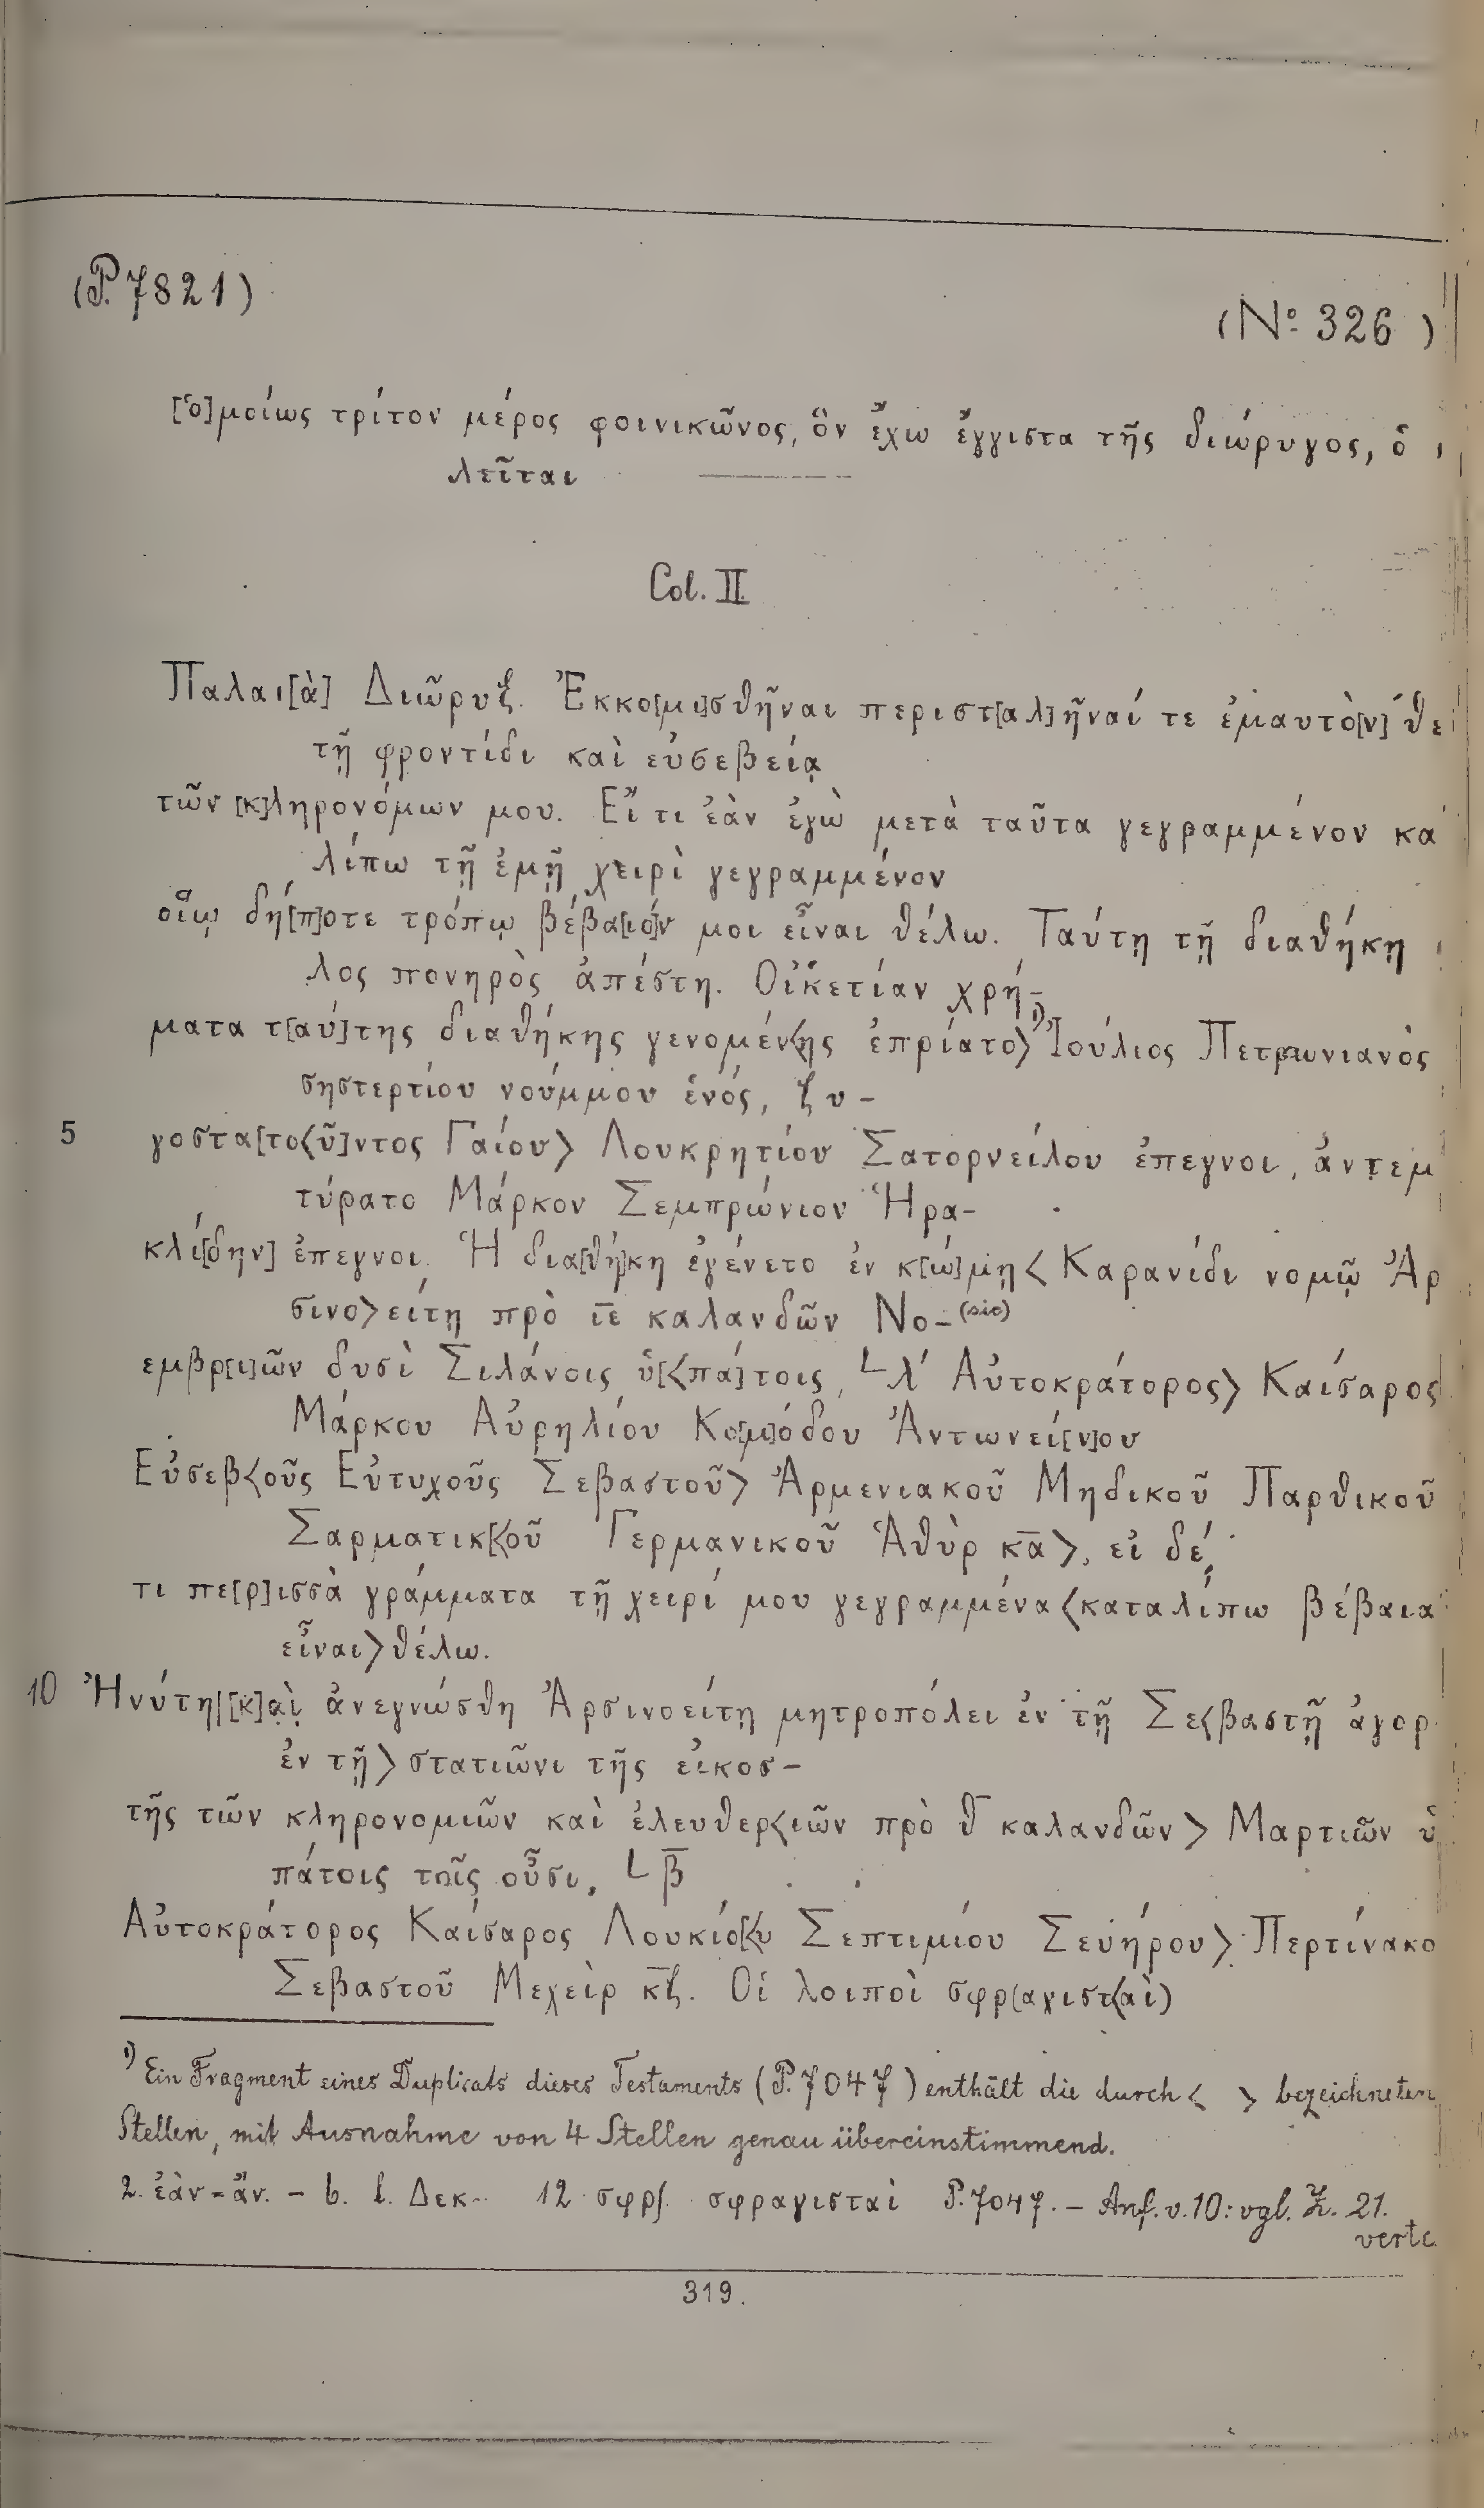 (P. 7821)
(No. 326)
[ὁ]μοίως τρίτον μέρος φοινικῶνος, ὃν ἔχω ἔγγιστα τῆς διώρυγος, ὃ
λεῖται
Col. II
Παλαι[ὰ] Διῶρυξ. Ἐκκο[μι]σθῆναι περιστ[αλ]ῆναί τε ἐμαυτὸ[ν] θε
τῇ φροντίδι καὶ εὐσεβείᾳ
τῶν [κ]ληρονόμων μου. Εἴ τι ἐὰν ἐγὼ μετὰ ταῦτα γεγραμμένον κα
λίπω τῇ ἐμῇ χειρὶ γεγραμμένον
οἵῳ δή[π]οτε τρόπῳ βέβα[ιό]ν μοι εἶναι θέλω. Ταύτῃ τῇ διαθήκῃ
λος πονηρὸς ἀπέστη. Οἰκετίαν χρή-
ματα τ[αύ]της διαθήκης γενομέν<ης ἐπρίατο>¹⁾ Ἰούλιος Πετρωνιανὸς
σηστερτίου νούμμου ἑνός, ζυ-
5 γοστα[το<ῦ]ντος Γαίου> Λουκρητίου Σατορνείλου ἐπεγνοι, ἀντεμ
τύρατο Μάρκον Σεμπρώνιον Ἡρα-
κλί[δην] ἐπεγνοι. Ἡ δια[θή]κη ἐγένετο ἐν κ[ώ]μῃ <Καρανίδι νομῷ Ἀρ
σινο>είτῃ πρὸ ι̅ε̅ καλανδῶν Νο- (sic)
εμβρ[ι]ῶν δυσὶ Σιλάνοις ὑ[<πά]τοις, L λ´ Αὐτοκράτορος> Καίσαρος
Μάρκου Αὐρηλίου Κο[μ]όδου Ἀντωνεί[ν]ου
Εὐσεβ<οῦς Εὐτυχοῦς Σεβαστοῦ> Ἀρμενιακοῦ Μηδικοῦ Παρθικοῦ
Σαρματικ[<οῦ Γερμανικοῦ Ἁθὺρ κ̅α̅>, εἰ δέ
τι πε[ρ]ισσὰ γράμματα τῇ χειρί μου γεγραμμένα <καταλίπω βέβαια
εἶναι> θέλω.
10 Ἠνύγη |[κ]αὶ ἀνεγνώσθη Ἀρσινοείτῃ μητροπόλει ἐν τῇ Σε<βαστῇ ἀγορ
ἐν τῇ> στατιῶνι τῆς εἰκοσ-
τῆς τῶν κληρονομιῶν καὶ ἐλευθερ<ιῶν πρὸ θ̅ καλανδῶν> Μαρτιῶν ὑ
πάτοις τοῖς οὖσι, L β̅
Αὐτοκράτορος Καίσαρος Λουκίο[<υ Σεπτιμίου Σευήρου> Περτίνακο
Σεβαστοῦ Μεχεὶρ κ̅ζ̅. Οἱ λοιποὶ σφρ(αγιστ<αὶ)
¹⁾ Ein Fragment eines Duplicats dieses Testaments (P. 7047) enthält die durch < > bezeichneten
Stellen, mit Ausnahme von 4 Stellen genau übereinstimmend.
2. ἐὰν = ἄν. – 6. l. Δεκ-- 12 σφρ∫. σφραγισταὶ P. 7047. – Anf. v. 10: vgl. Z. 21.
verte
319.